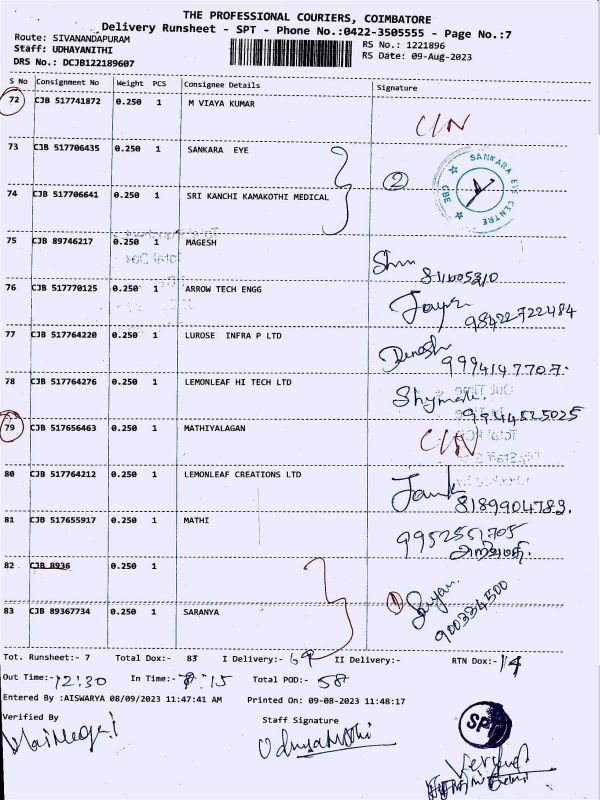 THE PROFESSIONAL COURIERS, COIMBATORE
Delivery Runsheet - SPT - Phone No.:0422-3505555 - Page No.:7
Route: SIVANANDAPURAM
RS No.: 1221896
Staff: UDHAYANITHI
RS Date: 09-Aug-2023
DRS No.: DCJB122189607
S No Consignment No Weight PCS Consignee Details Signature
72 CJB 517741872 0.250 1 M VIAYA KUMAR
C/N
73 CJB 517706435 0.250 1 SANKARA EYE
2
SANKARA EYE CENTRE CBE
74 CJB 517706641 0.250 1 SRI KANCHI KAMAKOTHI MEDICAL
75 CJB 89746217 0.250 1 MAGESH
76 CJB 517770125 0.250 1 ARROW TECH ENGG
98422722484
77 CJB 517764220 0.250 1 LUROSE INFRA P LTD
Dinesh
9994147707.
78 CJB 517764276 0.250 1 LEMONLEAF HI TECH LTD
9944525025
79 CJB 517656463 0.250 1 MATHIYALAGAN
C/N
80 CJB 517764212 0.250 1 LEMONLEAF CREATIONS LTD
8189904782.
81 CJB 517655917 0.250 1 MATHI
9952551705
82 CJB 8936 0.250 1
1
83 CJB 89367734 0.250 1 SARANYA
900334500
Tot. Runsheet:- 7 Total Dox:- 83 I Delivery:- 69 II Delivery:- RTN Dox:- 14
Out Time:- 12:30 In Time:- 7:15 Total POD:- 58
Entered By :AISWARYA 08/09/2023 11:47:41 AM Printed On: 09-08-2023 11:48:17
Verified By Staff Signature
SPT